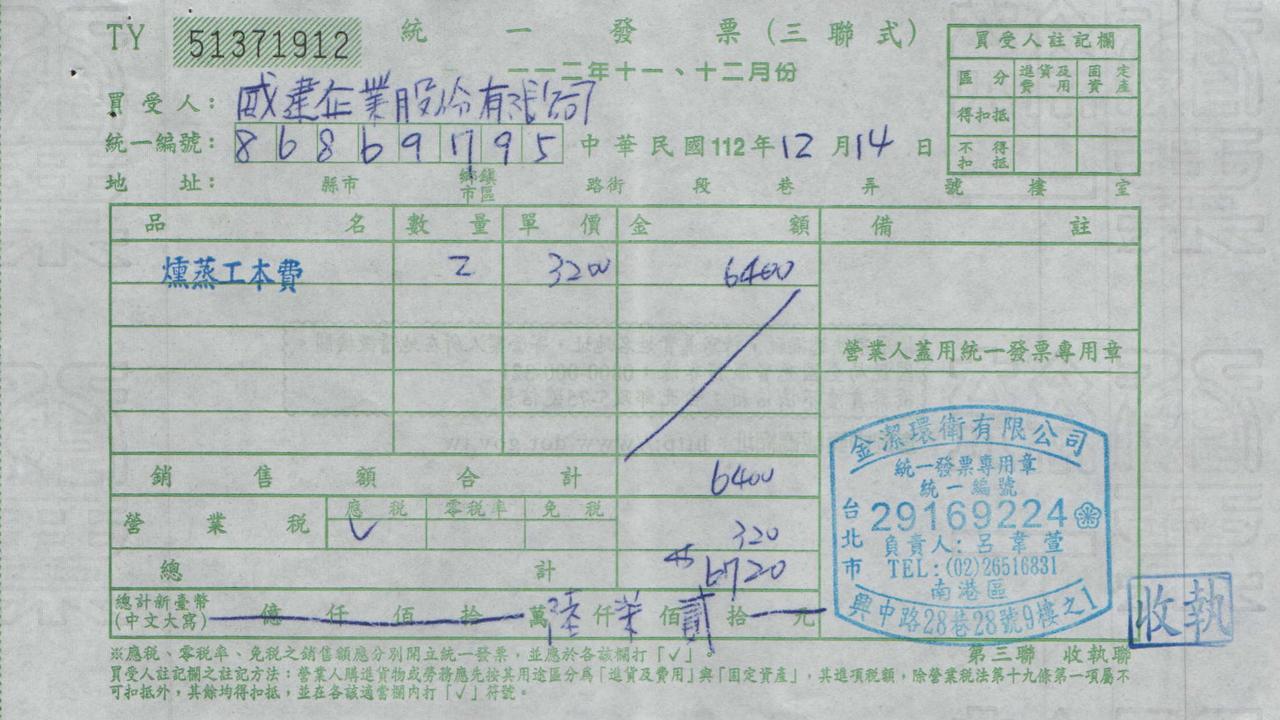 TY 51371912 統一發票(三聯式)
一一二年十一、十二月份
買受人註記欄
區分 進貨及費用 固定資產
得扣抵
不得扣抵
買受人: 威建企業股份有限公司
統一編號: 86869795 中華民國112年12月14日
地址: 縣市 鄉鎮市區 路街 段 巷 弄 號 樓 室
品名 數量 單價 金額 備註
燻蒸工本費 2 3200 6400
營業人蓋用統一發票專用章
銷售額合計 6400
營業稅 應稅 零稅率 免稅 320
✓
總計 6720
總計新臺幣
(中文大寫) 億 仟 佰 拾 萬 陸 仟 柒 佰 貳 拾 元
金潔環衛有限公司
統一發票專用章
統一編號
29169224
台北市
負責人:呂韋萱
TEL:(02)26516831
南港區
興中路28巷28號9樓之1
收執
第三聯 收執聯
※應稅、零稅率、免稅之銷售額應分別開立統一發票,並應於各該欄打「✓」。
買受人註記欄之註記方法:營業人購進貨物或勞務應先按其用途區分為「進貨及費用」與「固定資產」,其進項稅額,除營業稅法第十九條第一項屬不
可扣抵外,其餘均得扣抵,並在各該適當欄內打「✓」符號。